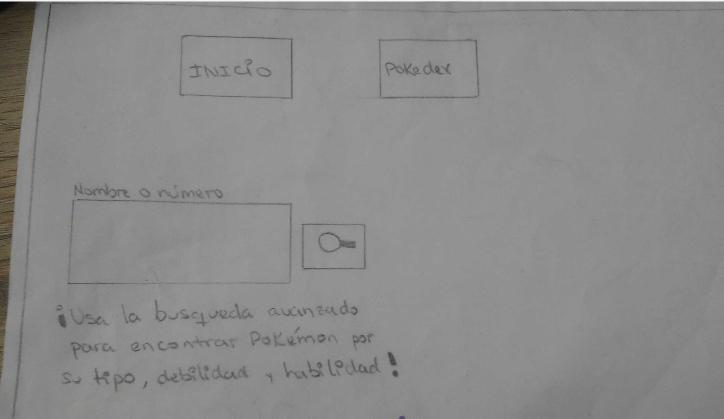 INICIO
Pokedex
Nombre o número
¡Usa la busqueda avanzado
para encontrar Pokémon por
su tipo, debilidad y habilidad!